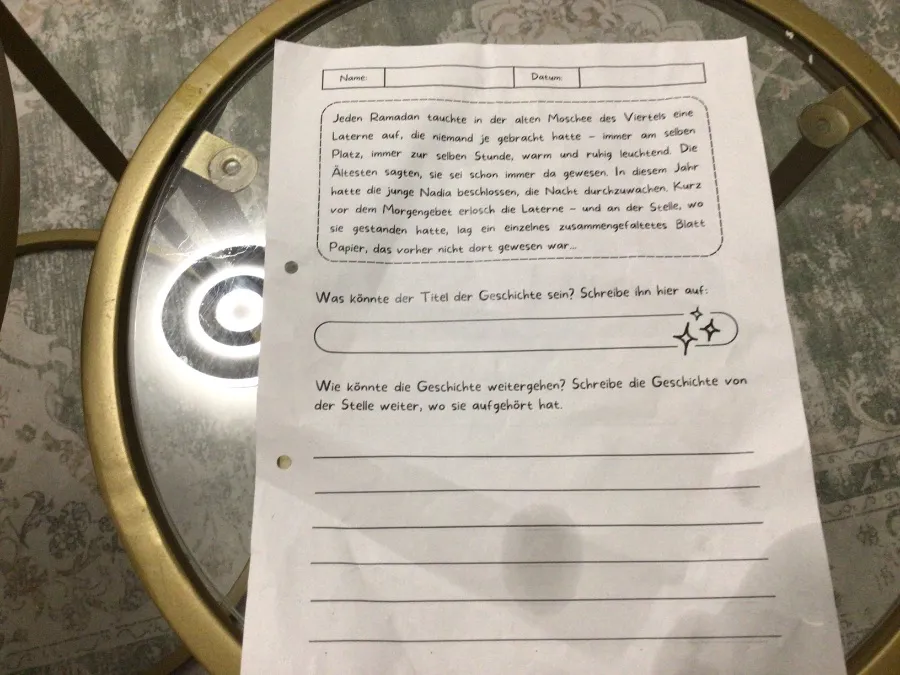 Name: Datum:
Jeden Ramadan tauchte in der alten Moschee des Viertels eine
Laterne auf, die niemand je gebracht hatte – immer am selben
Platz, immer zur selben Stunde, warm und ruhig leuchtend. Die
Ältesten sagten, sie sei schon immer da gewesen. In diesem Jahr
hatte die junge Nadia beschlossen, die Nacht durchzuwachen. Kurz
vor dem Morgengebet erlosch die Laterne – und an der Stelle, wo
sie gestanden hatte, lag ein einzelnes zusammengefaltetes Blatt
Papier, das vorher nicht dort gewesen war...
Was könnte der Titel der Geschichte sein? Schreibe ihn hier auf:
Wie könnte die Geschichte weitergehen? Schreibe die Geschichte von
der Stelle weiter, wo sie aufgehört hat.